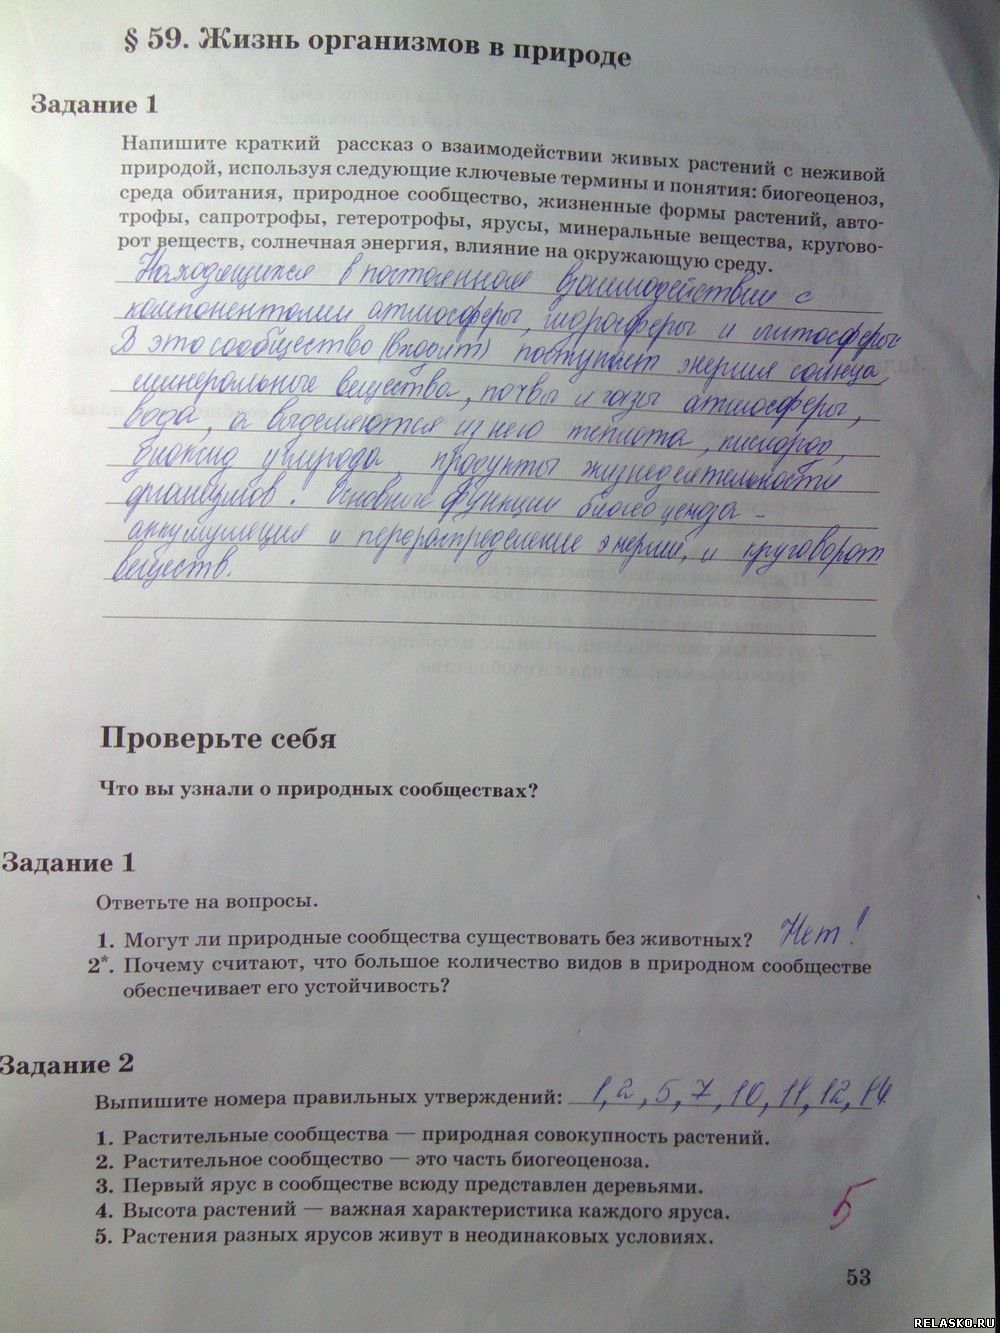 § 59. Жизнь организмов в природе
Задание 1
Напишите краткий рассказ о взаимодействии живых растений с неживой
природой, используя следующие ключевые термины и понятия: биогеоценоз,
среда обитания, природное сообщество, жизненные формы растений, авто-
трофы, сапротрофы, гетеротрофы, ярусы, минеральные вещества, кругово-
рот веществ, солнечная энергия, влияние на окружающую среду.
Находящихся в постоянном взаимодействии с
компонентами атмосферы, гидросферы и литосферы
В это сообщество (входит) поступает энергия солнца,
минеральные вещества, почвы и газы атмосферы,
вода, а выделяются из него теплота, кислород,
диоксид углерода, продукты жизнедеятельности
организмов. Основные функции биогеоценоза -
аккумуляция и перераспределение энергии, и круговорот
веществ.
Проверьте себя
Что вы узнали о природных сообществах?
Задание 1
Ответьте на вопросы.
1. Могут ли природные сообщества существовать без животных? Нет!
2*. Почему считают, что большое количество видов в природном сообществе
обеспечивает его устойчивость?
Задание 2
Выпишите номера правильных утверждений: 1, 2, 5, 7, 10, 11, 12, 14
1. Растительные сообщества — природная совокупность растений.
2. Растительное сообщество — это часть биогеоценоза.
3. Первый ярус в сообществе всюду представлен деревьями.
4. Высота растений — важная характеристика каждого яруса.
5. Растения разных ярусов живут в неодинаковых условиях.
5
53
RELASKO.RU